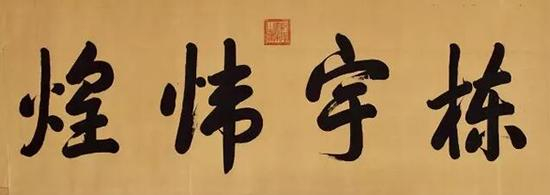 栋宇炜煌